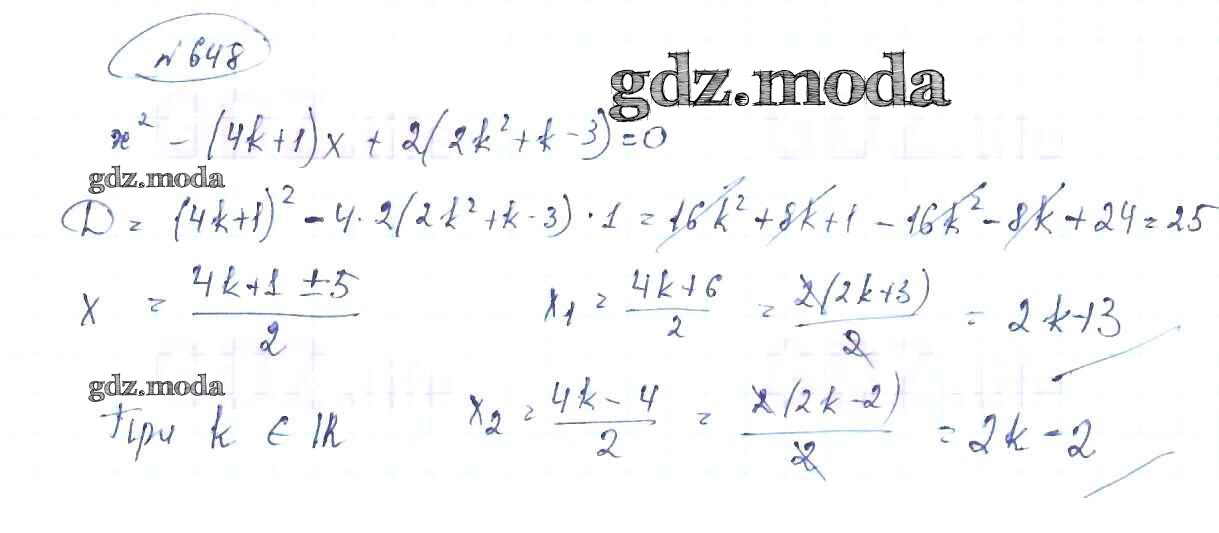 №648
gdz.moda
x² - (4k+1)x + 2(2k²+k-3)=0
gdz.moda
D = (4k+1)² - 4·2(2k²+k-3)·1 = 16k²+8k+1 - 16k² - 8k + 24 = 25
x = (4k+1 ± 5)/2 x₁ = (4k+6)/2 = 2(2k+3)/2 = 2k+3
gdz.moda
При k ∈ R x₂ = (4k-4)/2 = 2(2k-2)/2 = 2k-2